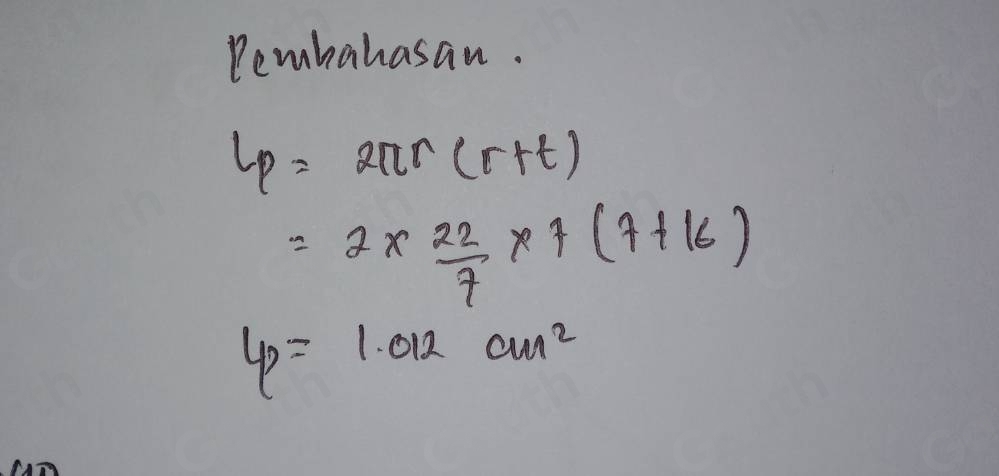 Pembahasan.
Lp = 2πr (r+t)
= 2 × 22/7 × 7 (7+16)
Lp = 1.012 cm²